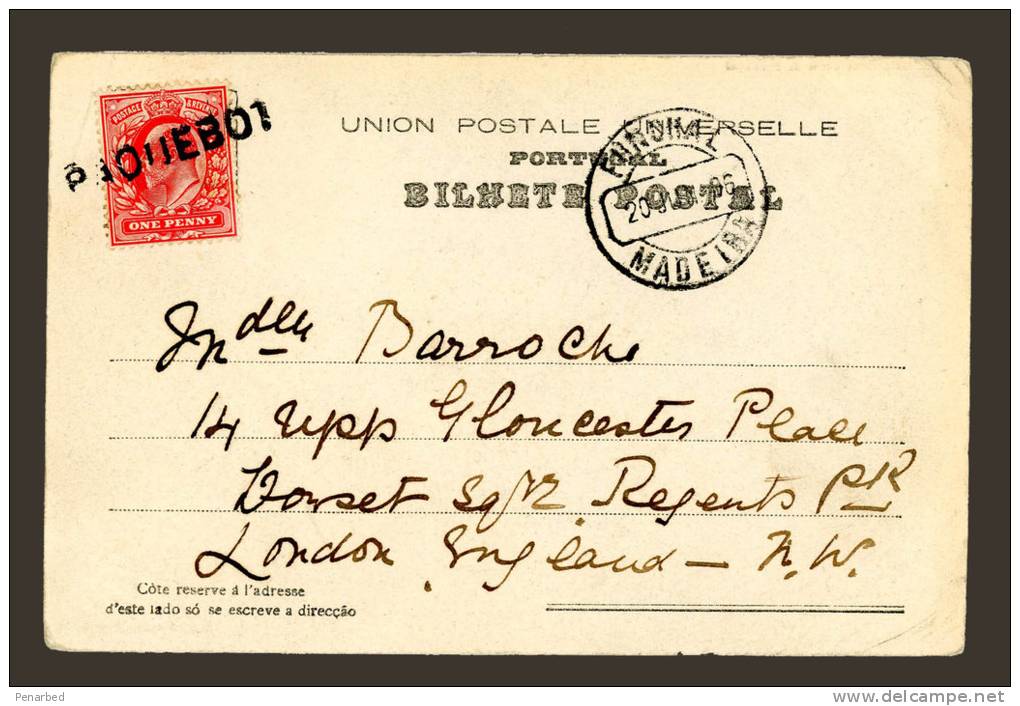 POSTAGE & REVENUE
ONE PENNY
PAQUEBOT
UNION POSTALE UNIVERSELLE
PORTUGAL
BILHETE POSTAL
FUNCHAL
MADEIRA
Mdlle Barroche
14 Upp Gloucester Place
Dorset Sqre Regents Pk
London England — N.W.
Côte reserve á l'adresse
d'este lado só se escreve a direcção
Penarbed
www.delcampe.net